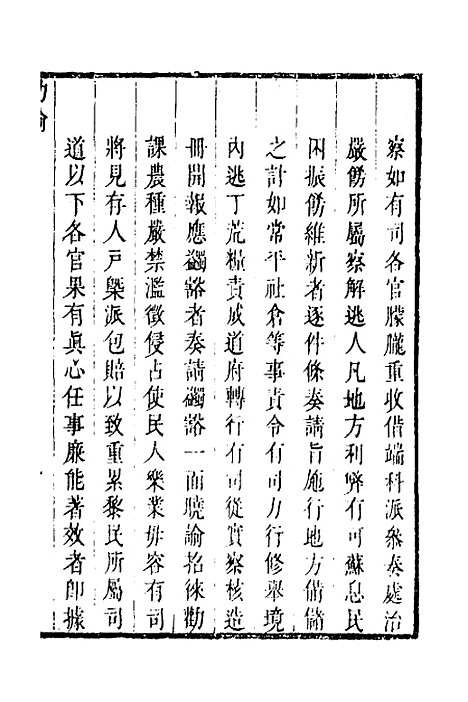 察如有司各官朦朧重收借端科派參奏處治
嚴飭所屬察解逃人凡地方利弊有可蘇息民
困振飭維新者逐件條奏請旨施行地方備儲
之計如常平社倉等事責令有司力行修舉境
內逃丁荒糧責成道府轉行有司從實察核造
冊開報應蠲豁者奏請蠲豁一面曉諭招徠勸
課農種嚴禁濫徵侵占使民人樂業毋容有司
將見存人戶槩派包賠以致重累黎民所屬司
道以下各官果有眞心任事廉能著效者卽據